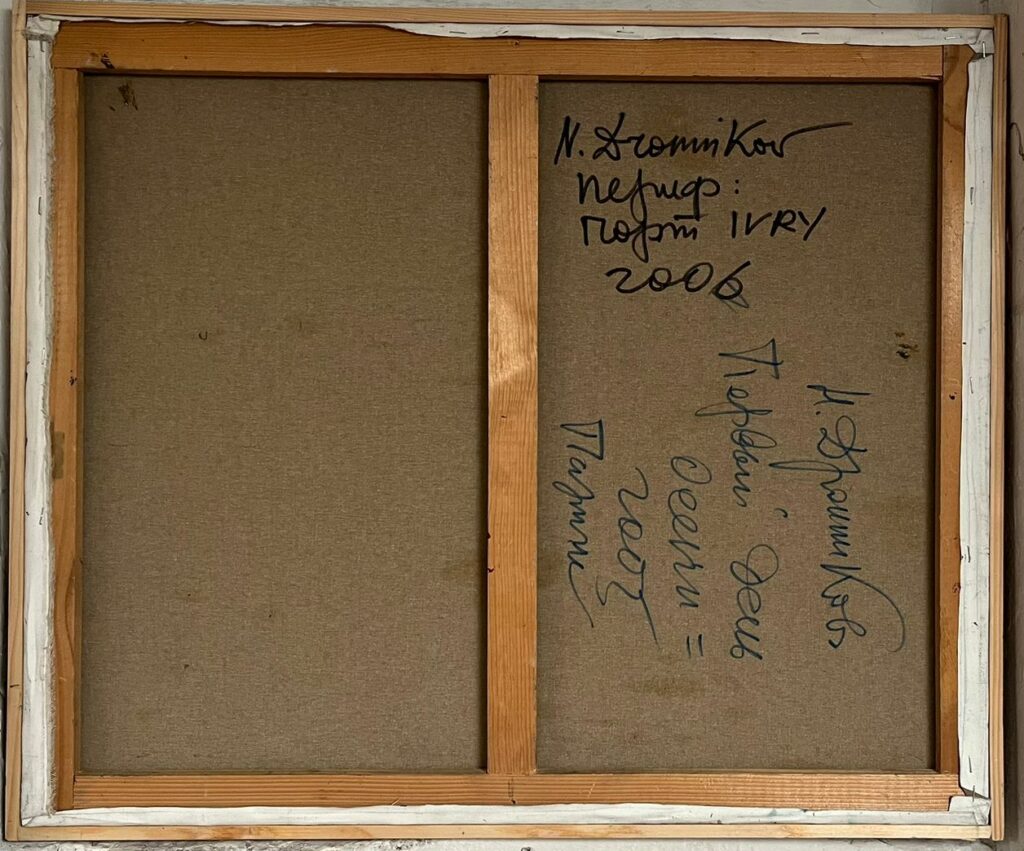 N. Dronnikov
Периф:
Порт IVRY
2006
Н. Дронников
Первый день
осени =
2005
Париж